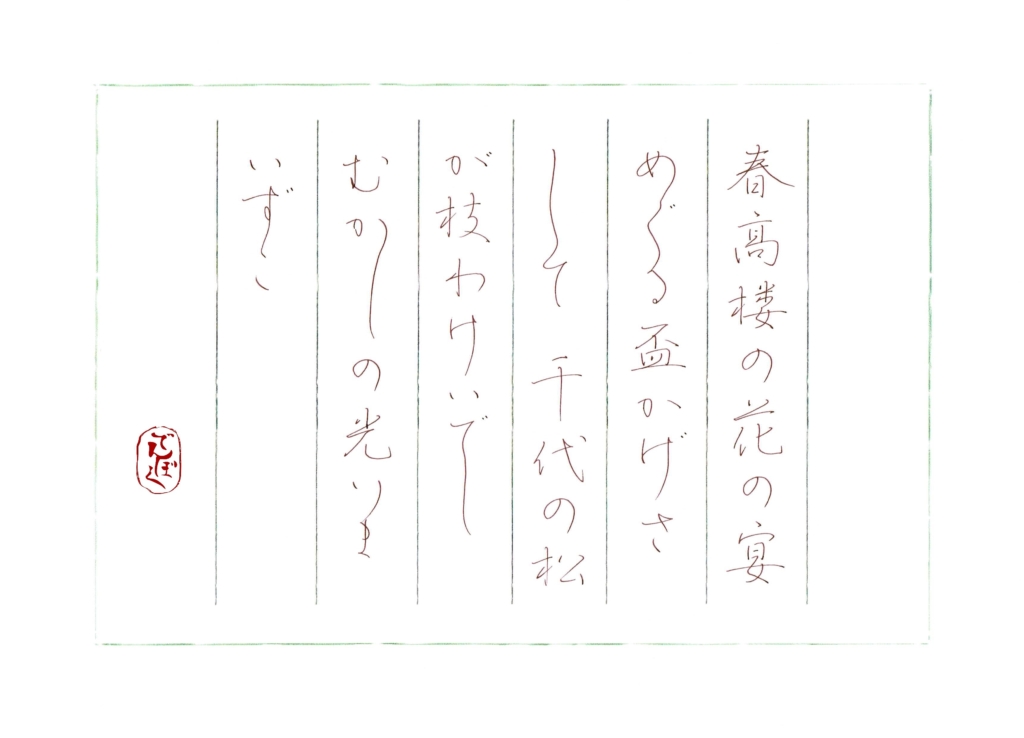 春高楼の花の宴
めぐる盃かげさ
して 千代の松
が枝わけいでし
むかしの光いま
いずこ